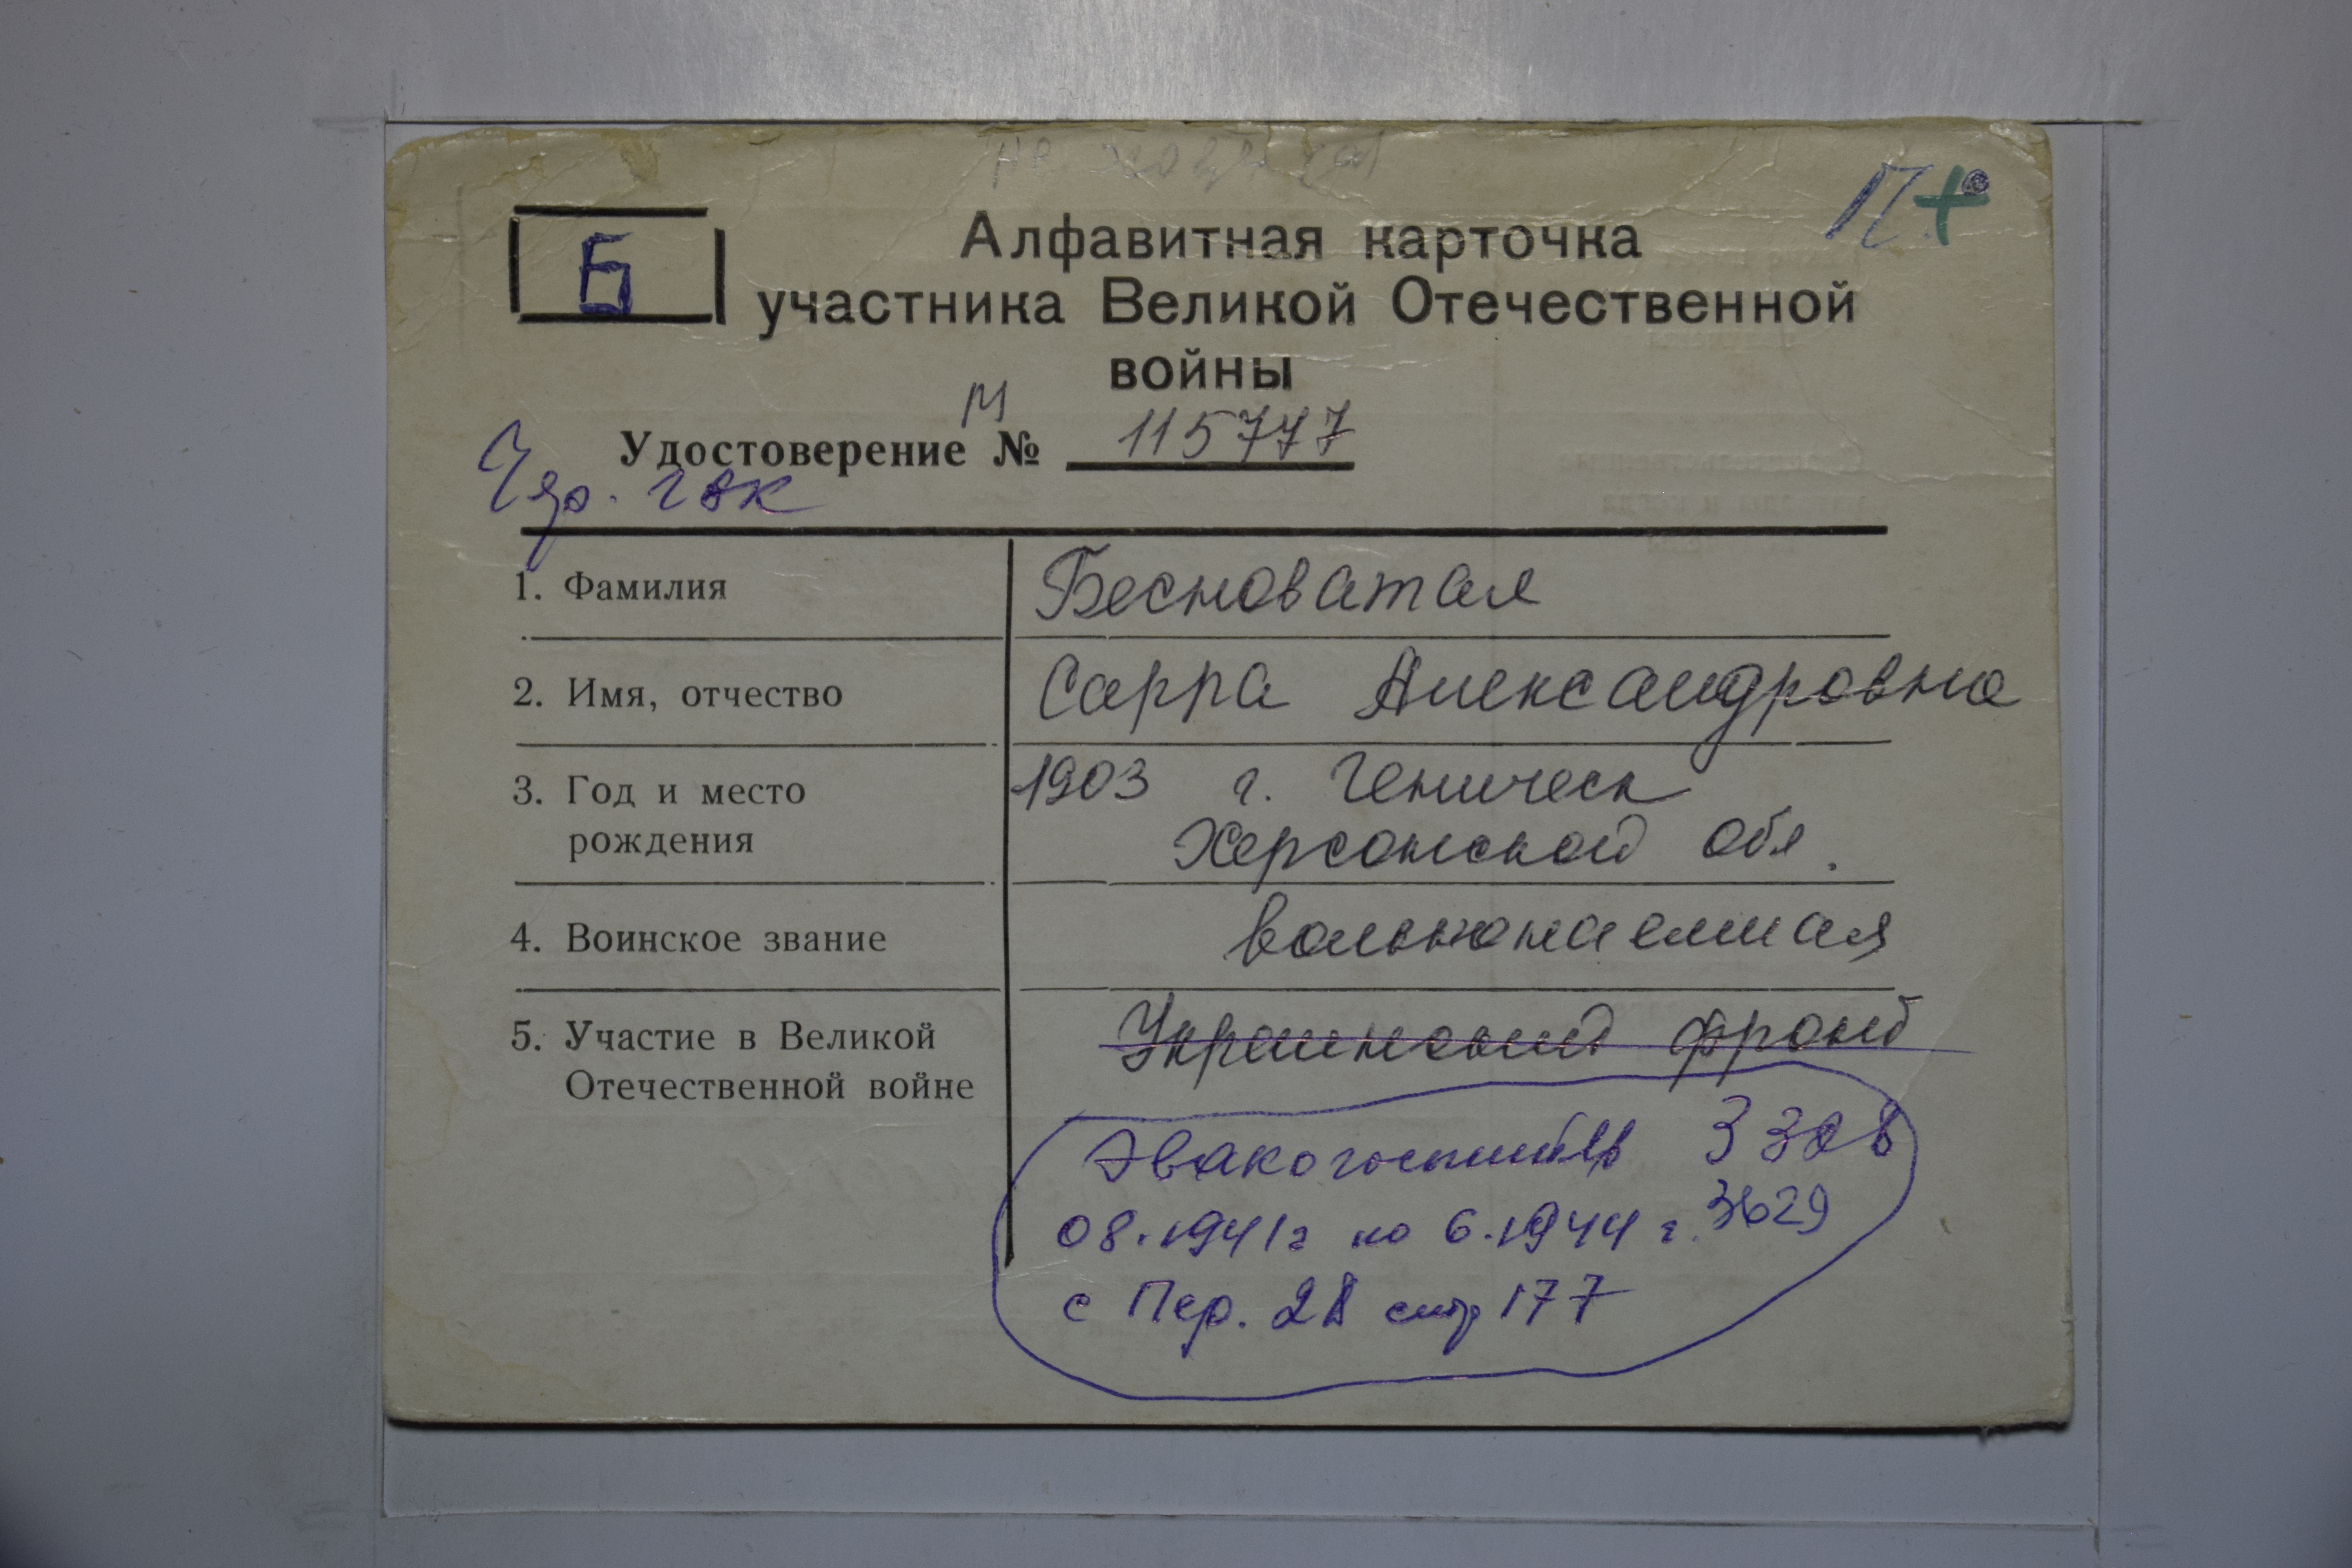 П+
Б
Алфавитная карточка
участника Великой Отечественной
войны
М
Удостоверение № 115777
1. Фамилия Бесноватая
2. Имя, отчество Сарра Александровна
3. Год и место 1903 г. Геническ
рождения Херсонской обл.
4. Воинское звание вольнонаемная
5. Участие в Великой Украинский фронт
Отечественной войне
Эвакогоспиталь
08.1941г по 6.1944 г. 3629
с Пер. 28 стр 177